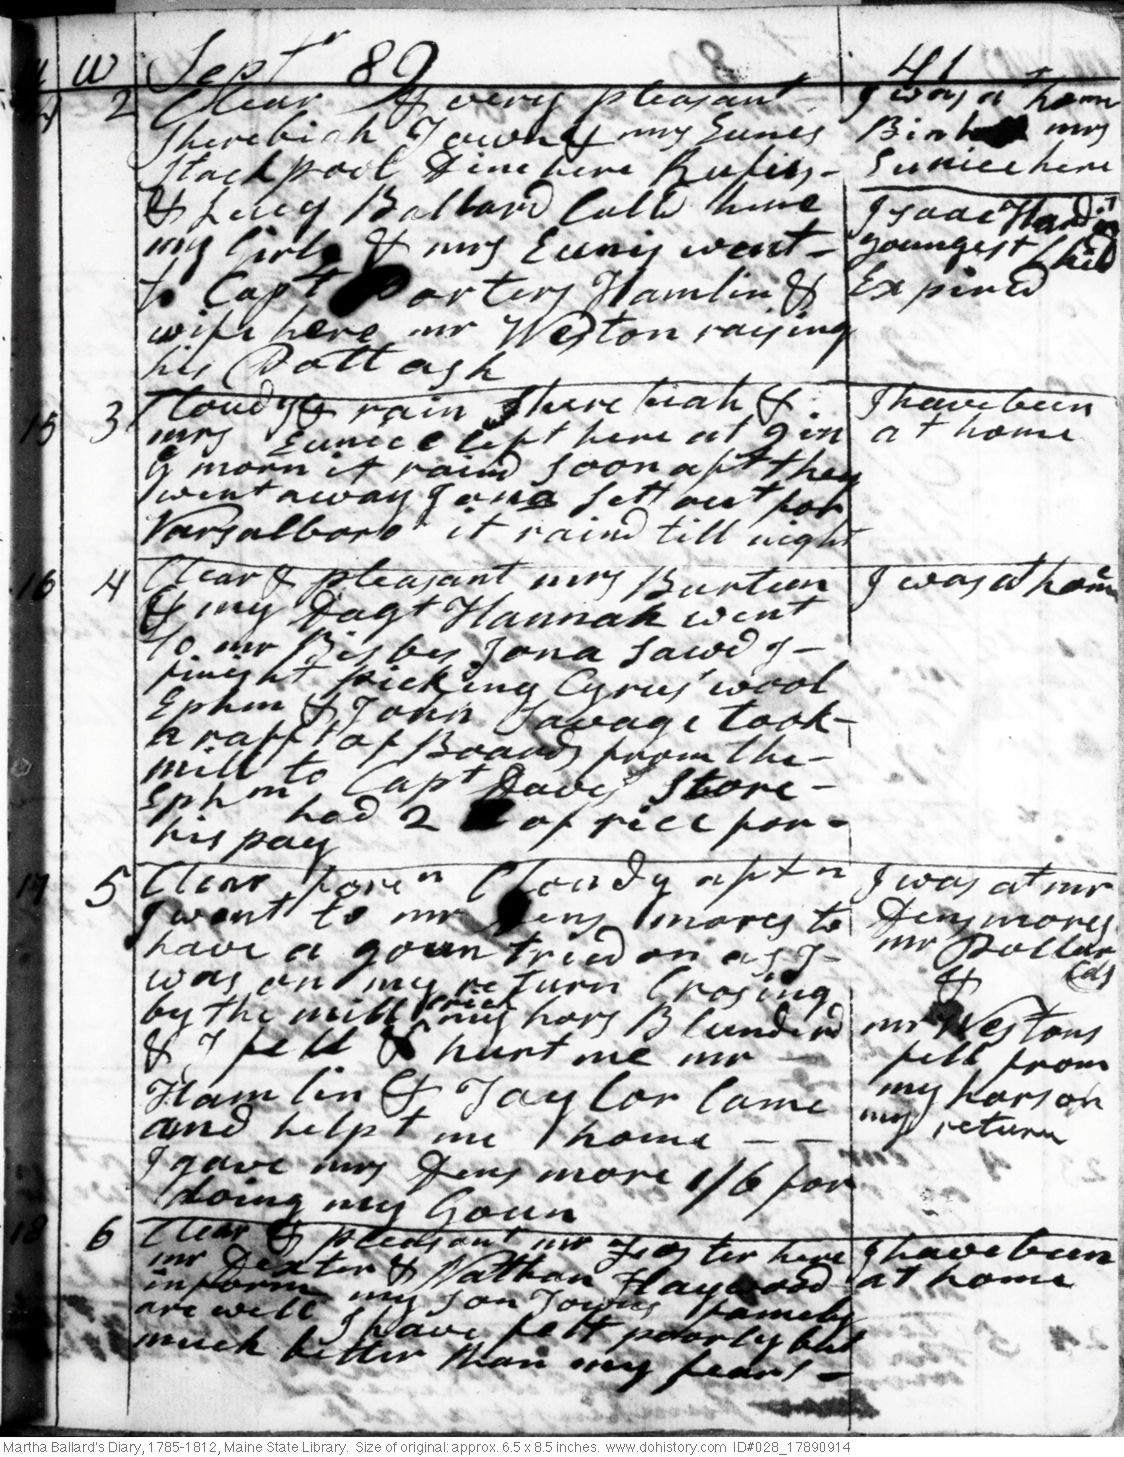 M W Septr 89 41
14 2 Clear & very pleasant
Sherebiah Town & mrs Eunes
Stackpool Dine here Rufus
& Lucy Ballard Calld here
my Girls & mrs Eunis went
to Capt Porters Hamlin &
wife here mr Weston raising
his Pottash
I was at home
Birth mrs
Eunice here
Isaac Hardins
youngest Child
Expired
15 3 Cloudy & rain Sherebiah &
mrs Eunice left here at 9 in
ye morn it raind soon aft they
went away Jona sett out for
Varsalboro it raind till night
I have been
at home
16 4 Clear & pleasant mrs Burtun
& my Dagt Hannah went
to mr Bisbes Jona sawd I
finisht picking Cyrus' wool
Ephm & John Savage took
a raft of Boards from the
mill to Capt Daves Store
Ephm had 2 of rice for
his pay
I was at home
17 5 Clear foren Cloudy aftn
I went to mr Dens mores to
have a goun tried on as I
was on my return Crosing
by the mill Crick my hors Blunderd
& I fell & hurt me mr
Hamlin & Taylor Came
and helpt me home — —
I gave mrs Dens more 1/6 for
doing my Goun
I was at mr
Densmores
mr Pollards
&
mr Westons
fell from
my hors on
my return
18 6 Clear & pleasant mr Foster here
mr Dexter & Nathan Haywood
inform my son Towns famely
are well I have felt poorly but
much better than my fears —
I have been
at home
Martha Ballard's Diary, 1785-1812, Maine State Library. Size of original: approx. 6.5 x 8.5 inches. www.dohistory.com ID#028_17890914